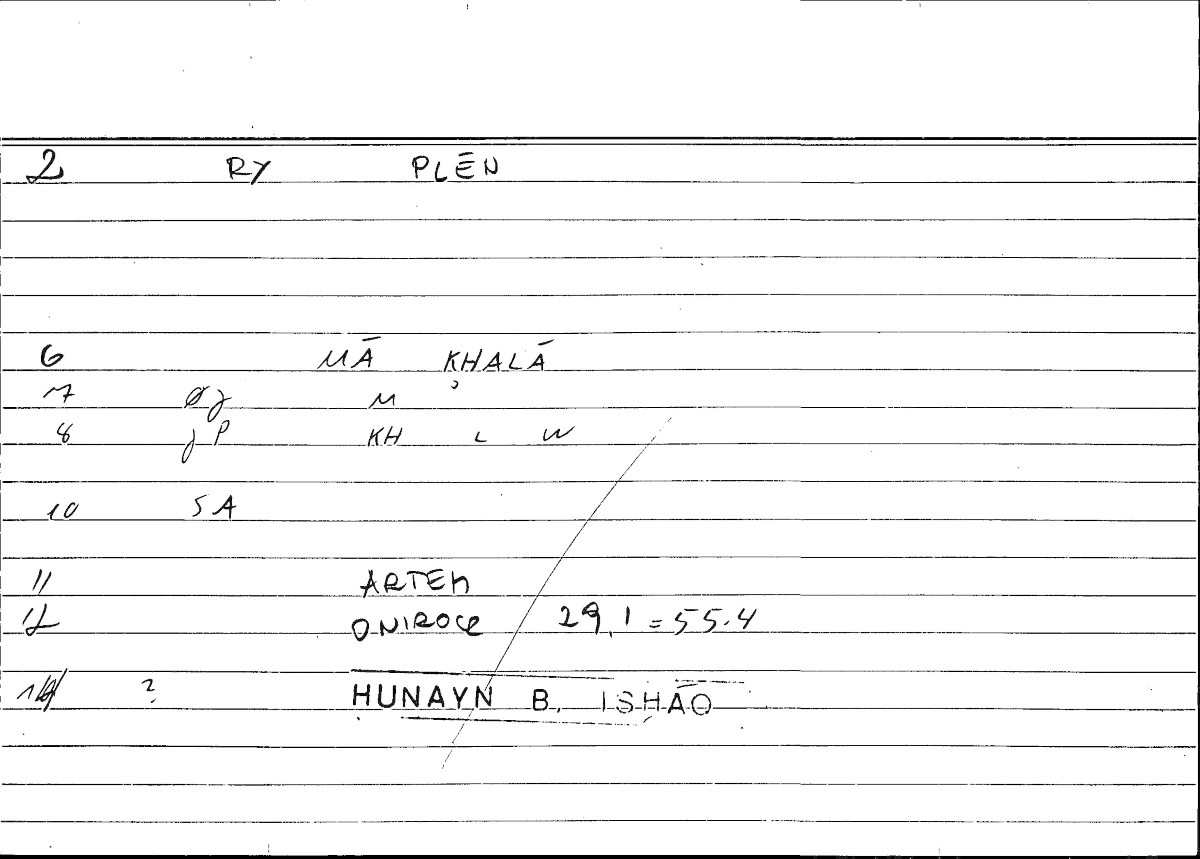 2 RY PLĒN
6 MĀ KHALĀ
7 Øj M
8 jP KH L W
10 SA
11 ARTEM
12 ONIROCR 29,1 = 55.4
? ḤUNAYN B. ISḤĀQ